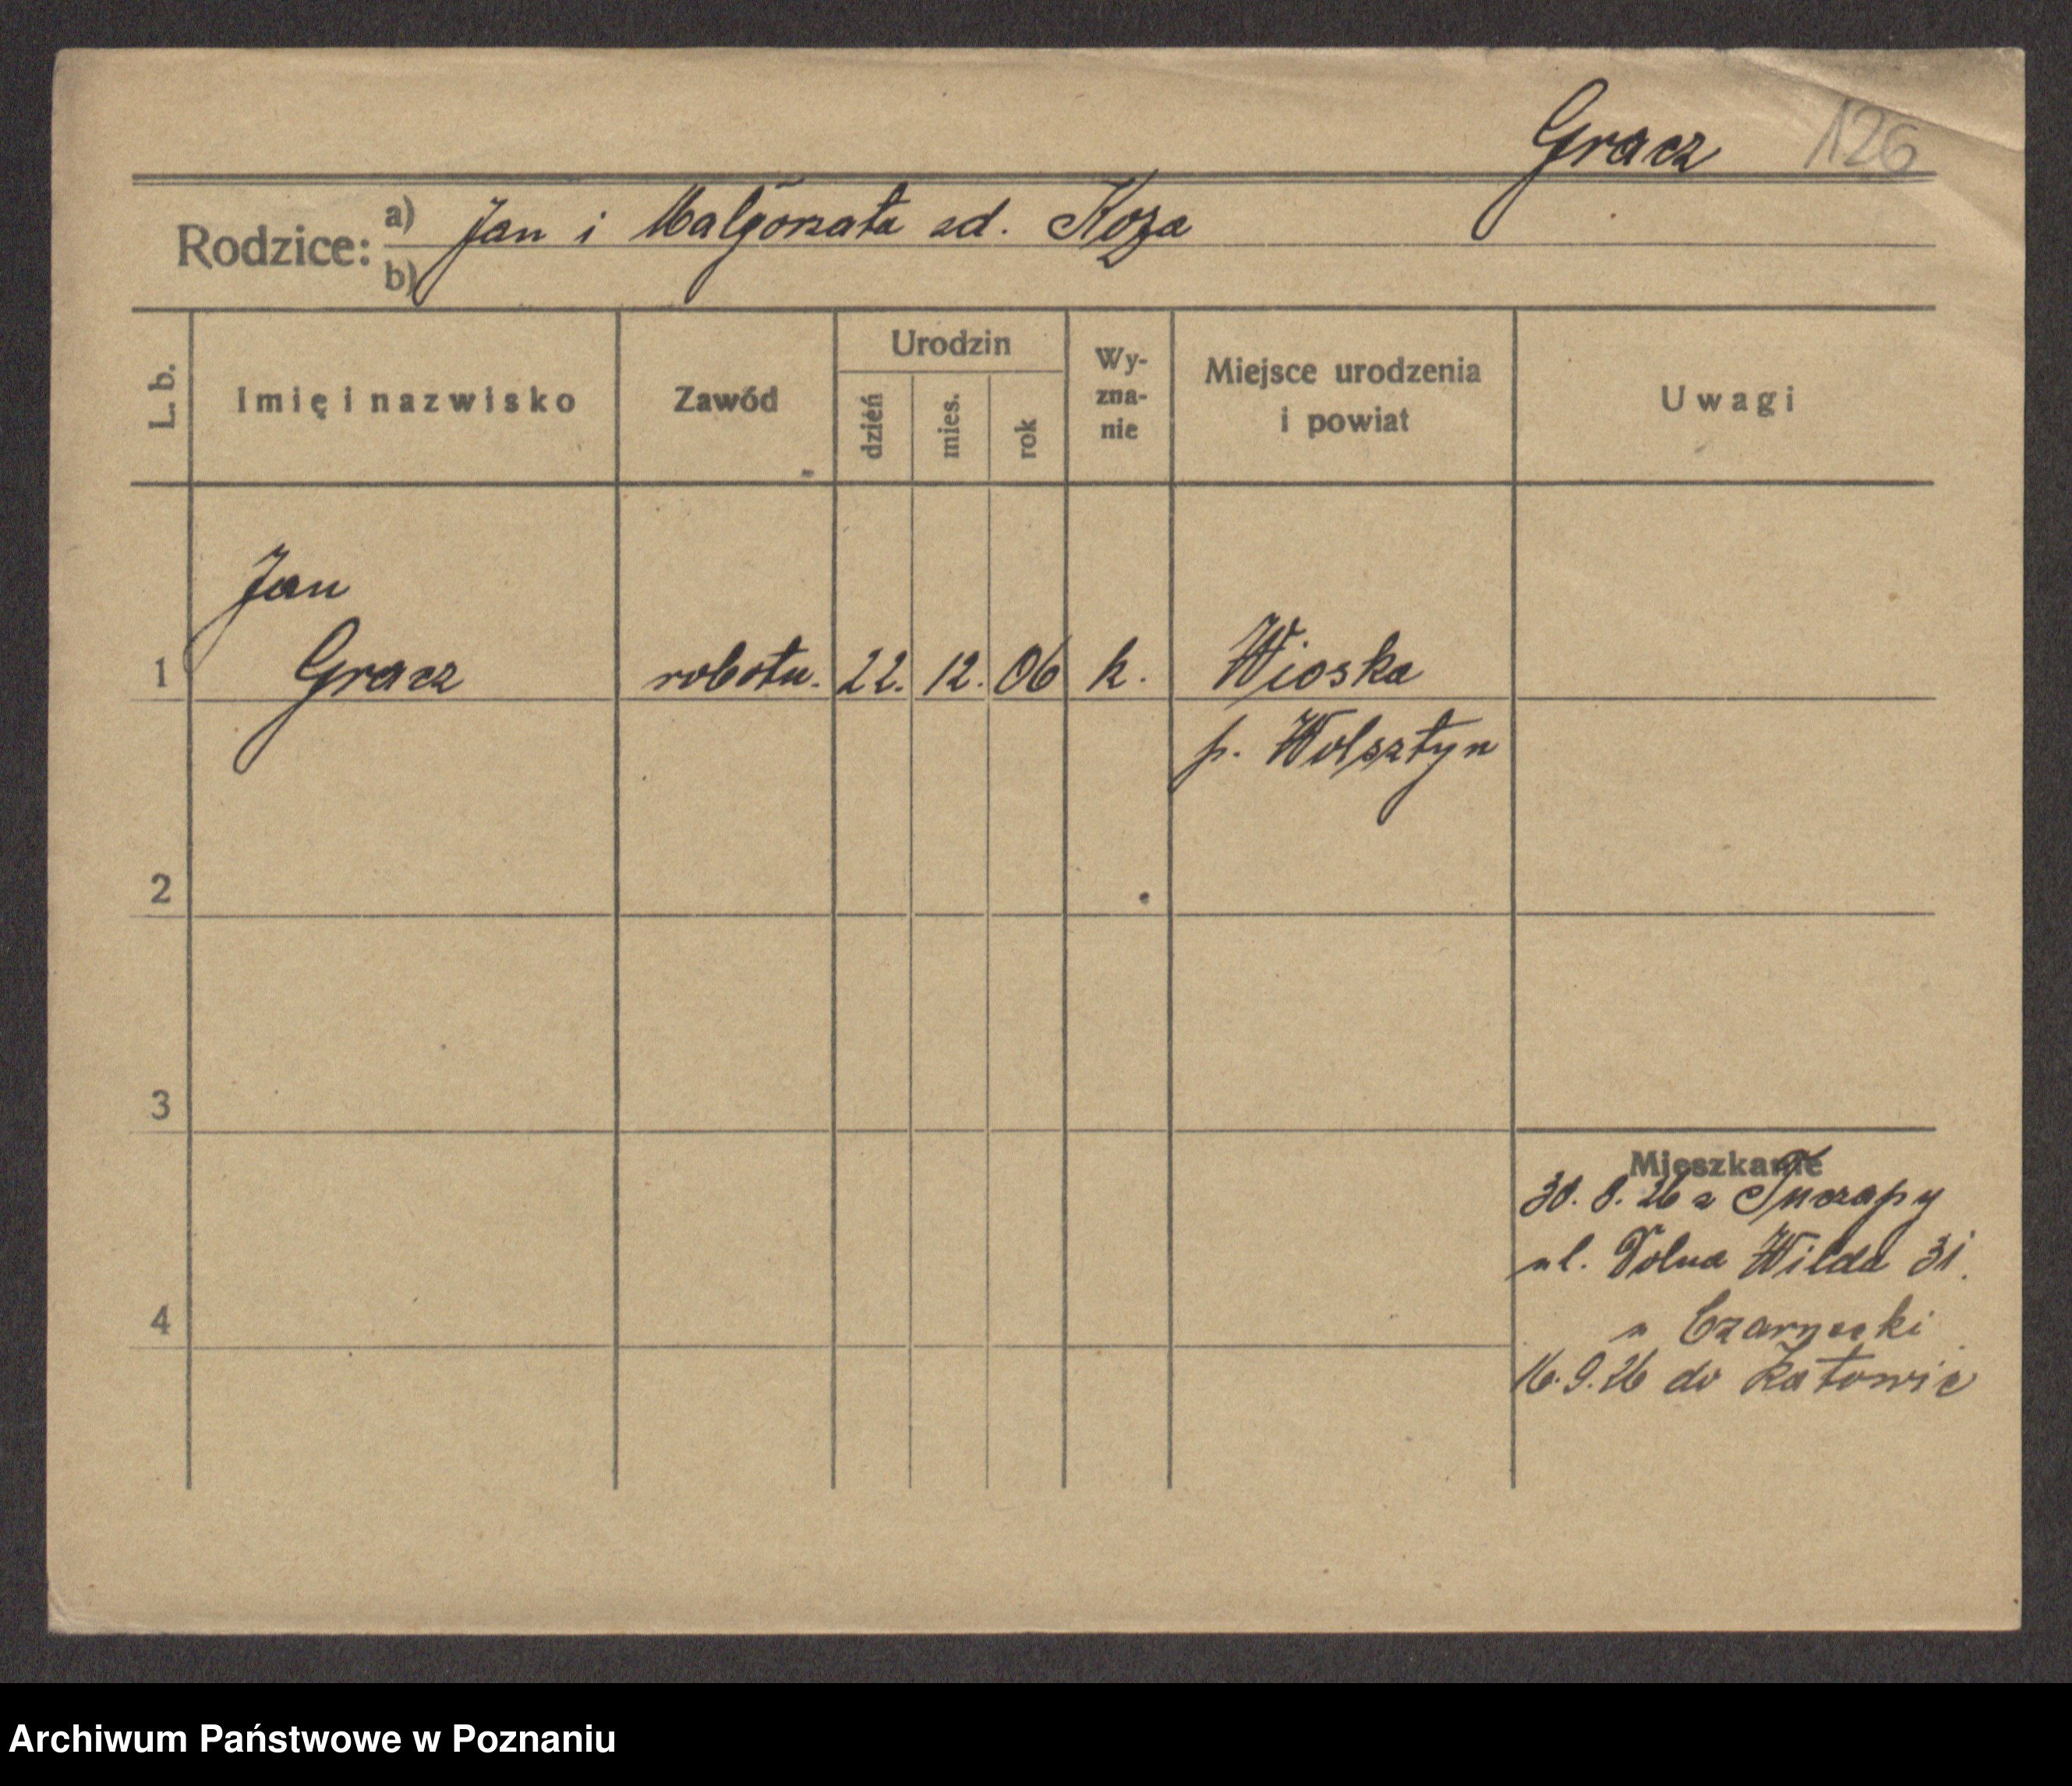 Gracz 126
Rodzice: a) Jan i Małgorzata zd. Koza
b)
L. b. Imię i nazwisko Zawód Urodzin dzień mies. rok Wy-zna-nie Miejsce urodzenia i powiat Uwagi
Jan
1 Gracz robotn. 22. 12. 06 k. Wioska
p. Wolsztyn
2
3
Mieszkanie
30. 8. 26 z Tuczępy
4
ul. Dolna Wilda 31.
u Czarnecki
16.9.26 do Katowic
Archiwum Państwowe w Poznaniu